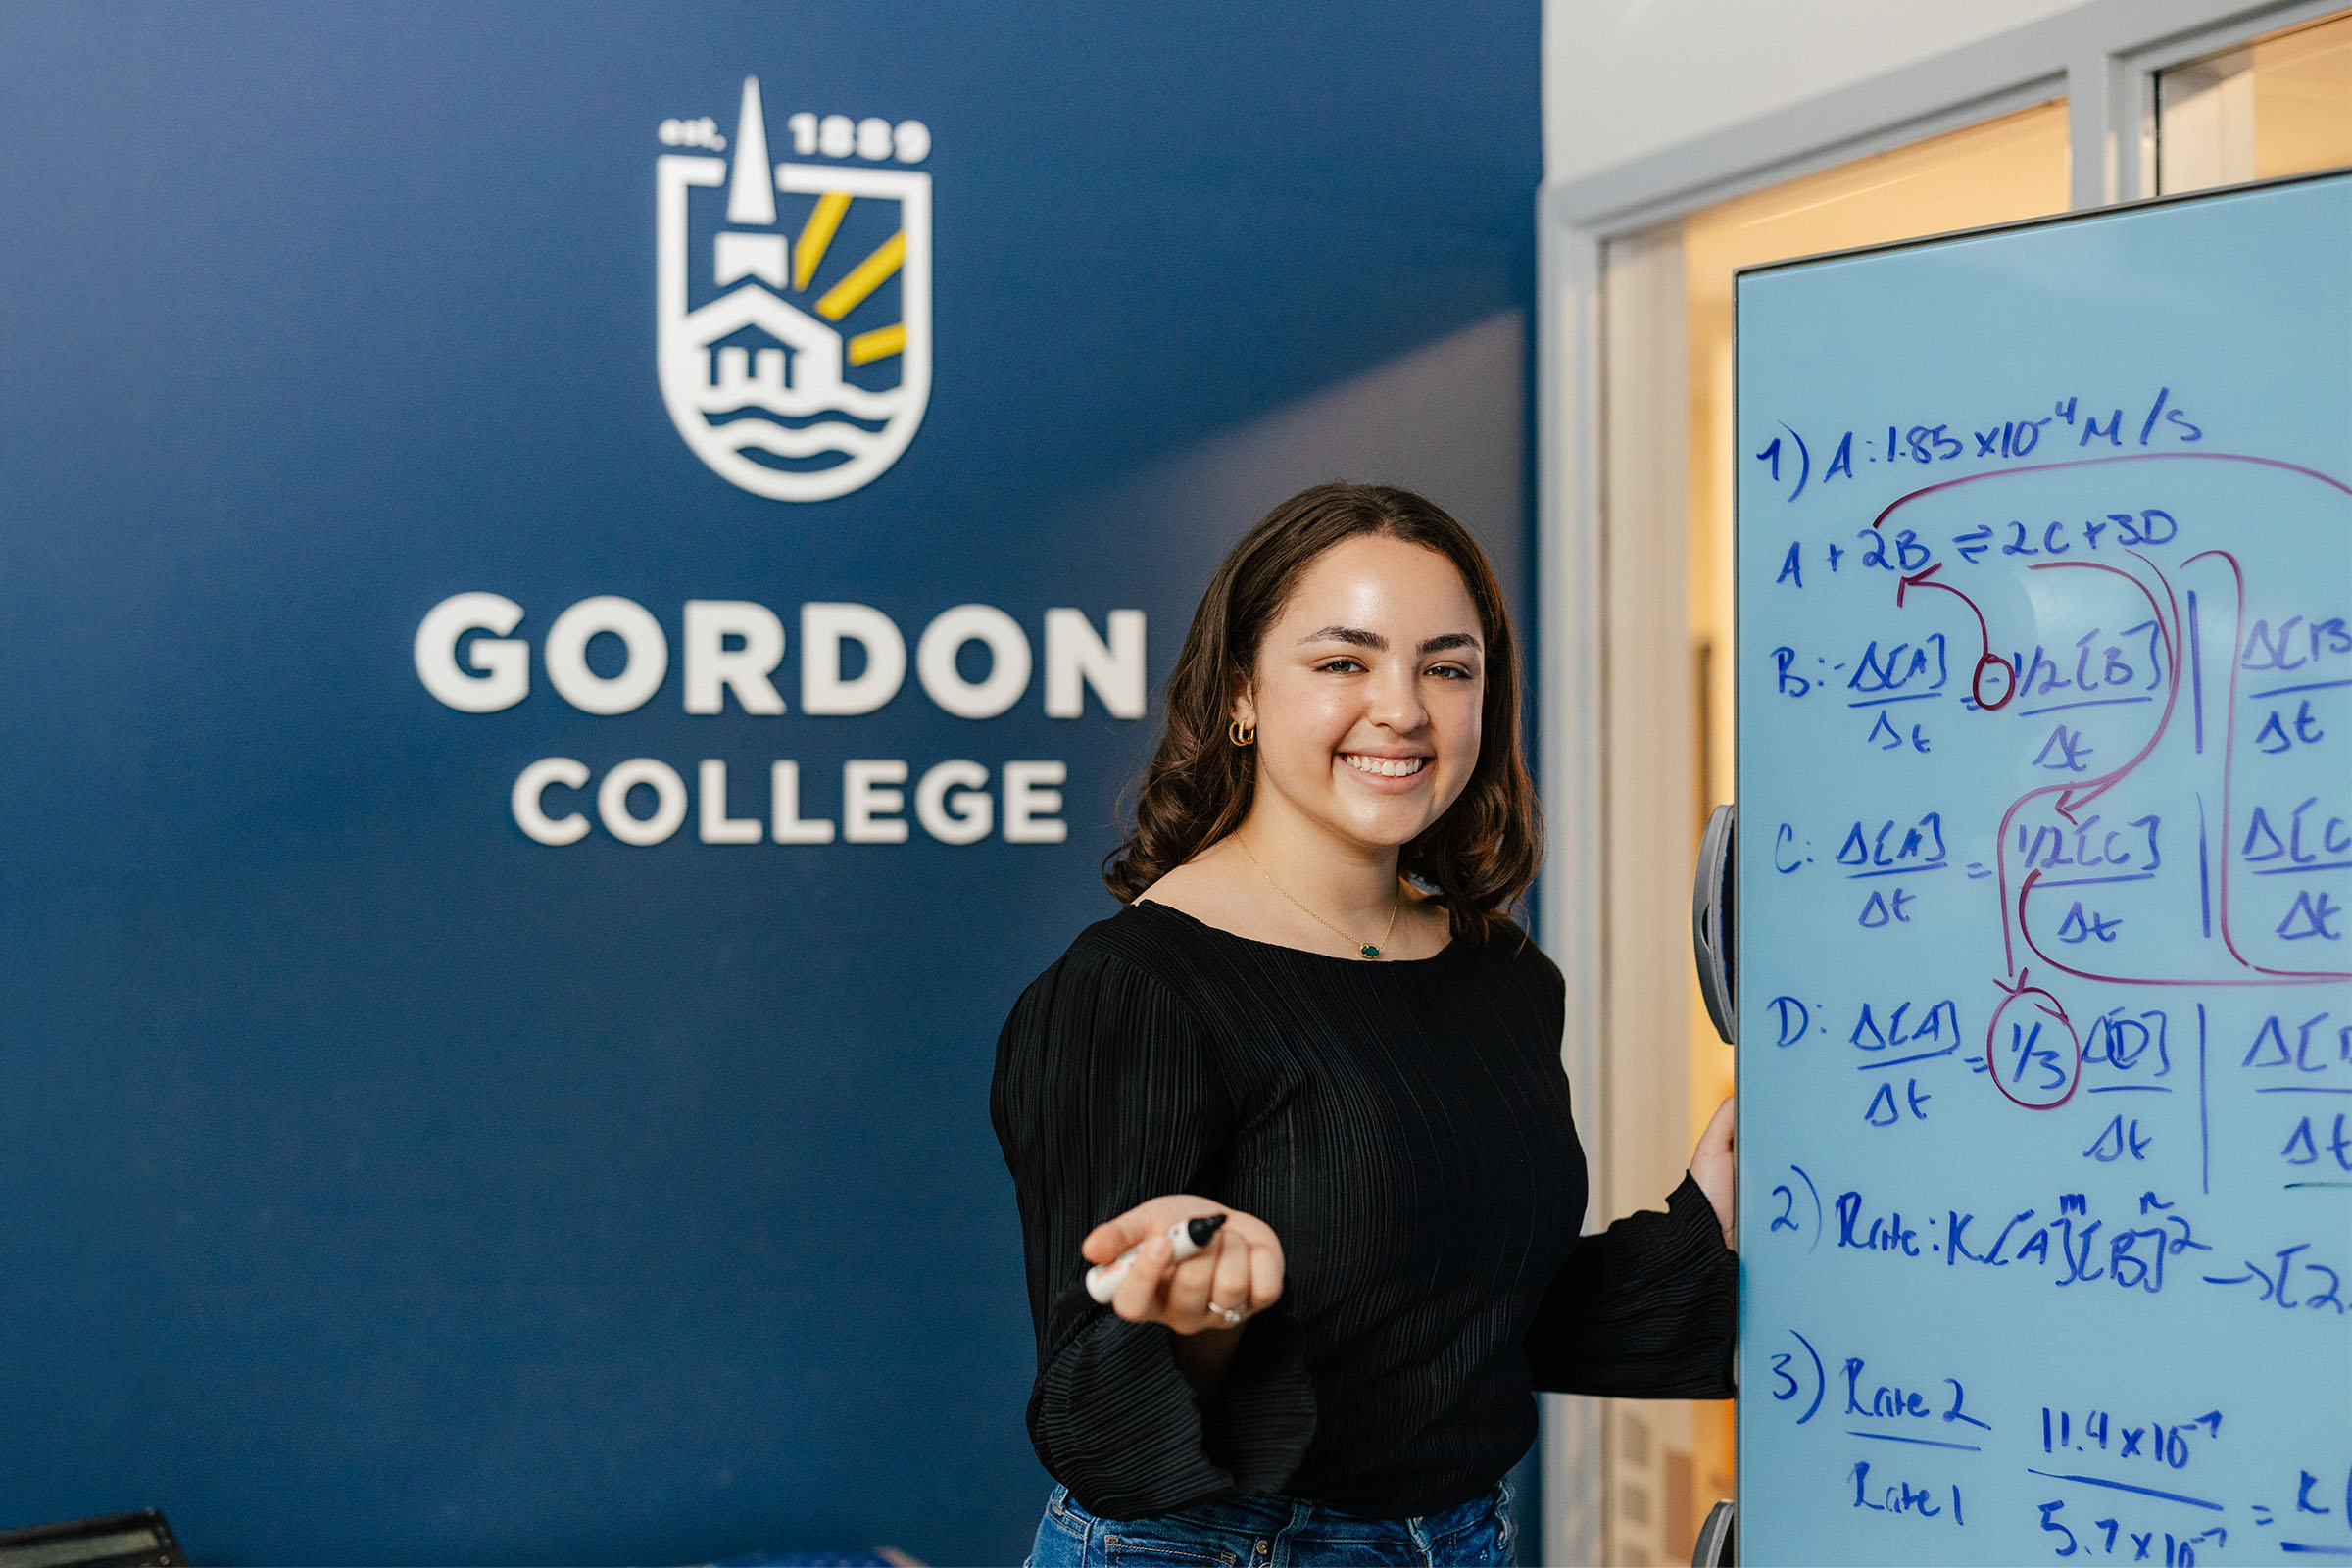 est. 1889
GORDON
COLLEGE
1) A: 1.85 x10⁻⁴ M/s
A + 2B ⇌ 2C + 3D
B: -Δ[A]/Δt = -1/2[B]/Δt | Δ[B/Δt
C: Δ[A]/Δt = 1/2[C]/Δt | Δ[C/Δt
D: Δ[A]/Δt = 1/3 Δ[D]/Δt | Δ[/Δt
2) Rate: K[A]ᵐ[B]ⁿ2 → [2
3) Rate 2/Rate 1 11.4x10⁻⁷/5.7x10⁻⁷ = K